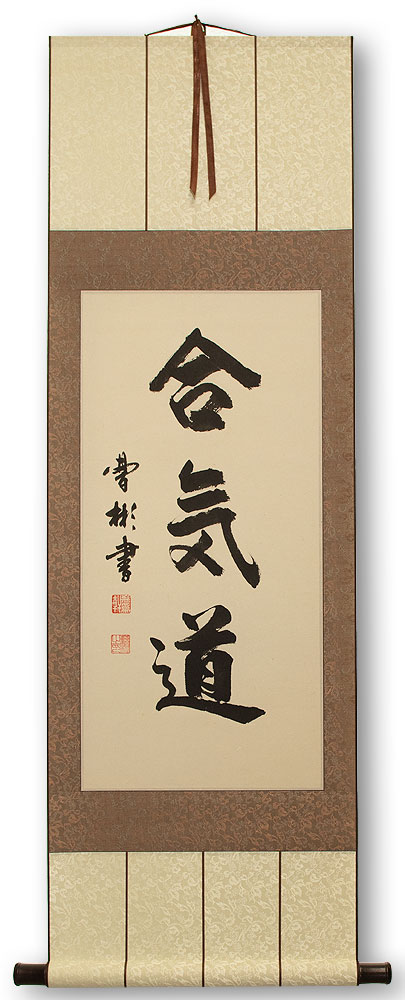 合気道
曹彬書